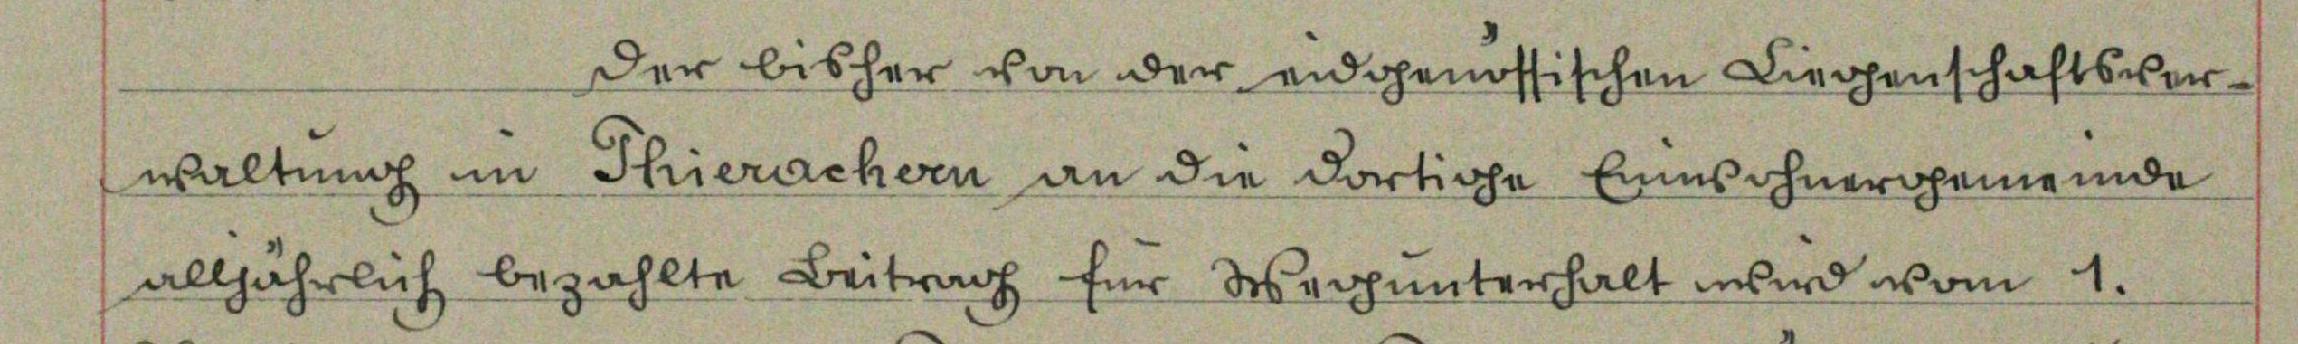 Der bisher von der eidgenössischen Liegenschaftsver-
waltung in Thierachern an die dortige Einwohnergemeinde
alljährlich bezahlte Beitrag für Wegunterhalt wird vom 1.